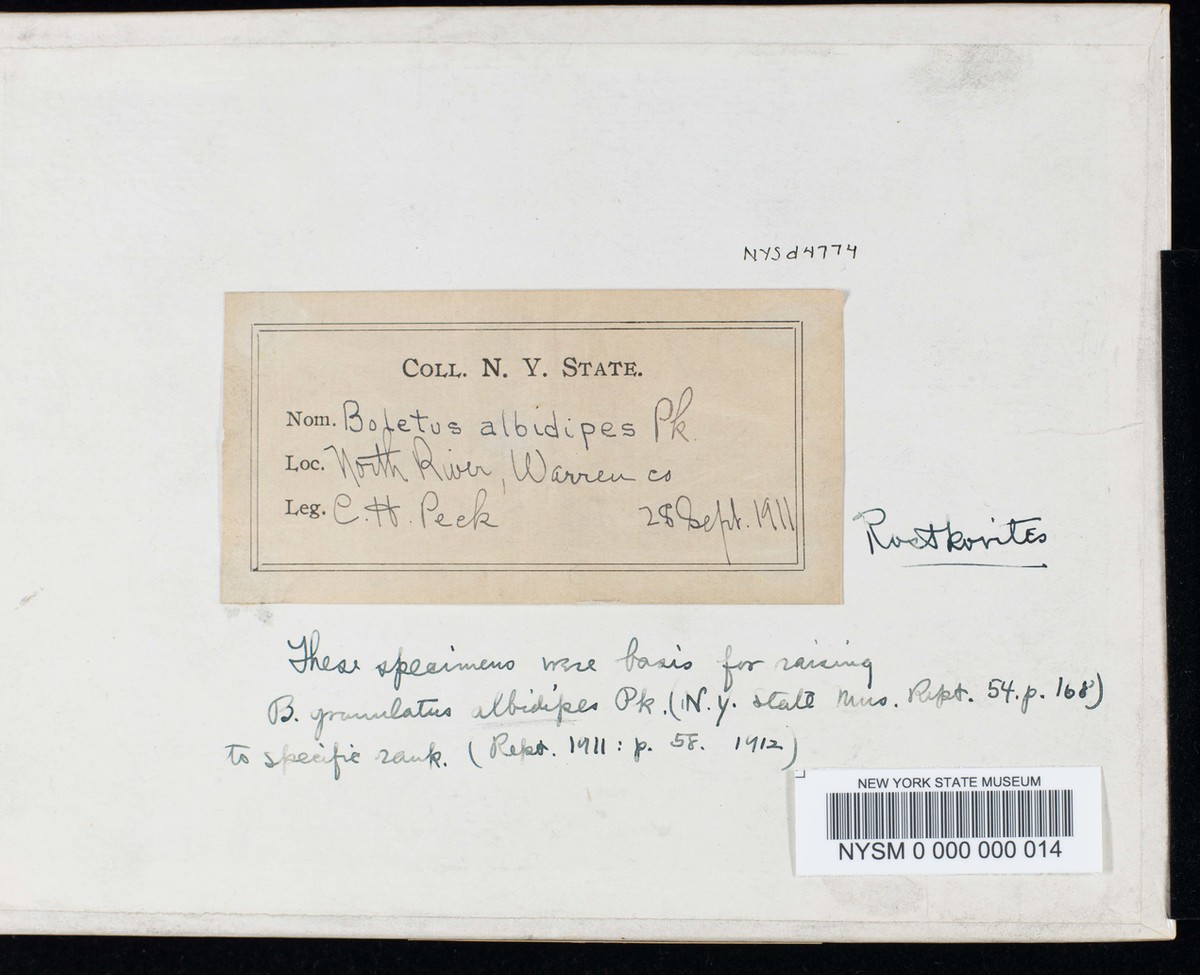 NYSd4774
COLL. N. Y. STATE.
Nom. Boletus albidipes Pk.
Loc. North River, Warren co
Leg. C. H. Peck 28 Sept. 1911
Rostkovites
These specimens were basis for raising
B. granulatus albidipes Pk. (N.Y. State Mus. Rept. 54. p. 168)
to specific rank. (Rept. 1911: p. 58. 1912)
NEW YORK STATE MUSEUM
NYSM 0 000 000 014